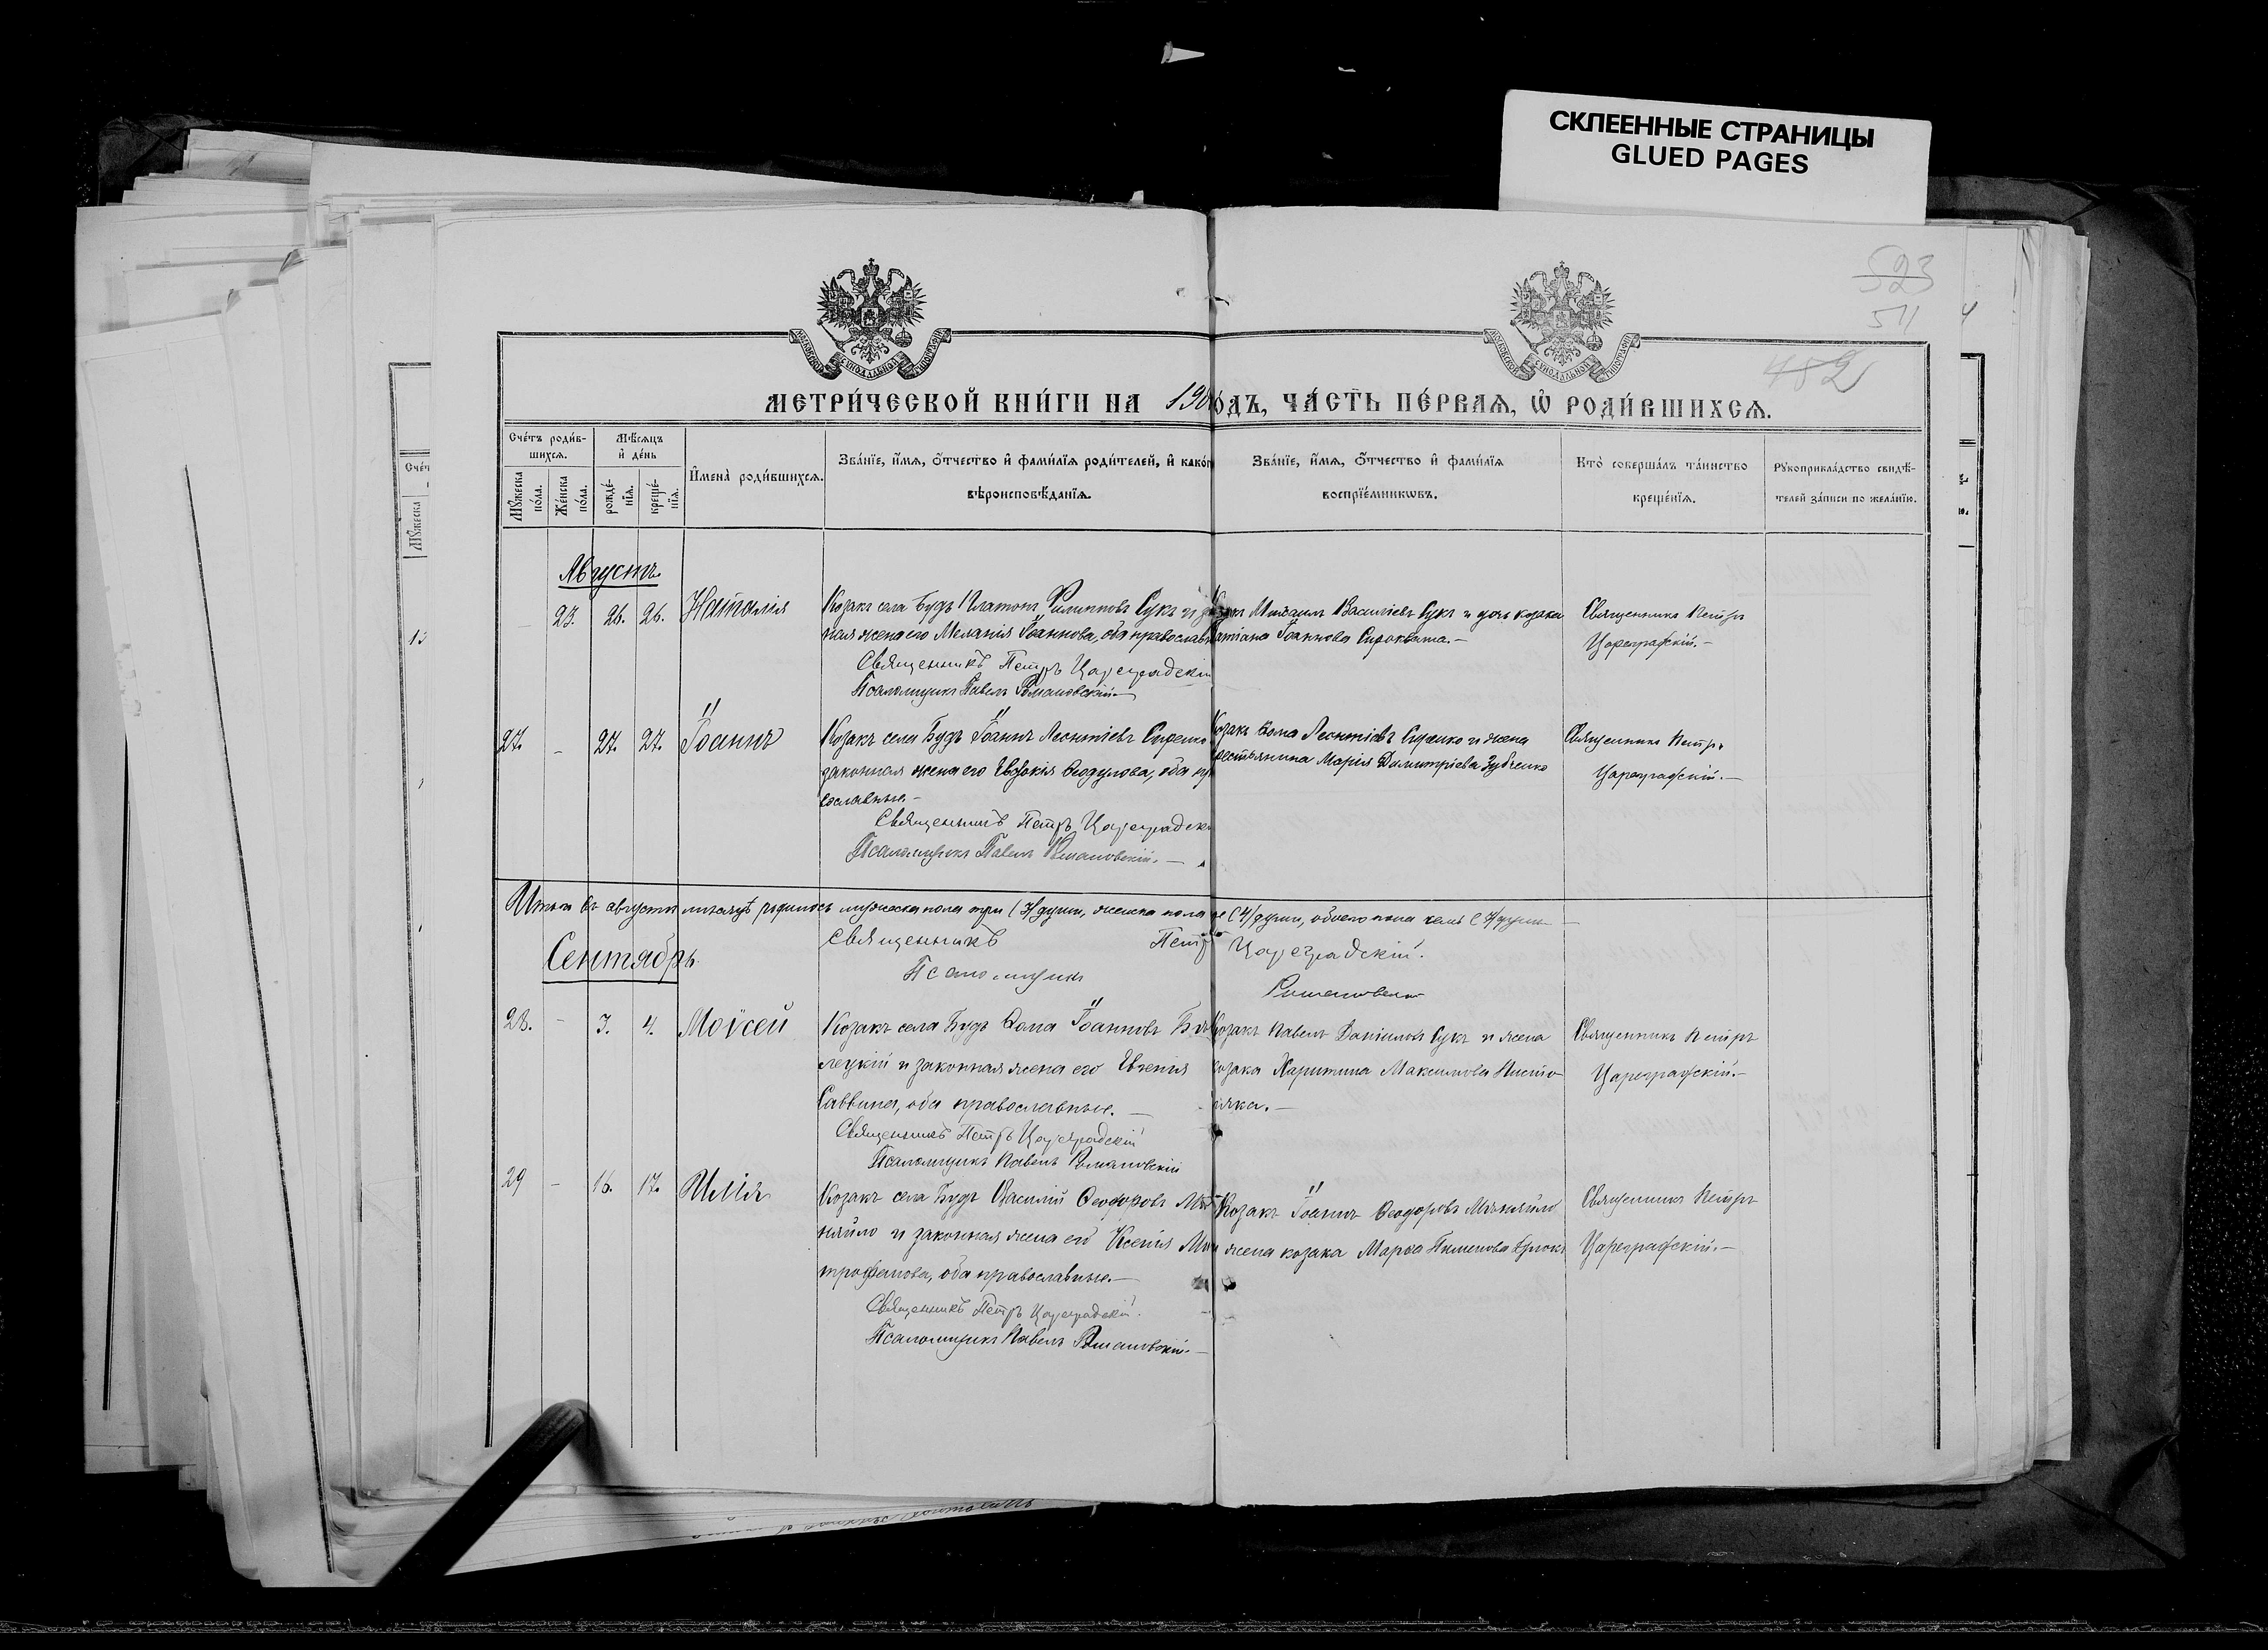 СКЛЕЕННЫЕ СТРАНИЦЫ
GLUED PAGES
523
511
482
МЕТРИ́ЧЕСКОЙ КНИ́ГИ НА 190 ОДЪ, ЧА́СТЬ ПЕ́РВАЯ, Ѡ҆ РОДИ́ВШИХСЯ.
Сче́тъ роди́вшихся.
Мѣ́сяцъ и҆ де́нь
И҆мена̀ роди́вшихся.
Зва́нїе, и҆́мя, о҆́тчество и҆ фами́лїя роди́телей, и҆ како́г
вѣроисповѣ́данїя.
Зва́нїе, и҆́мя, о҆́тчество и҆ фами́лїя
воспрїе́мниковъ.
Кто̀ соверша́лъ та́инство
креще́нїя.
Рꙋкоприкла́дство свидѣ́-
телей за́писи по жела́нїю.
Мꙋ́жеска по́ла.
Же́нска по́ла.
рожде́-нїя.
креще́-нїя.
Августъ.
23. 26. 26. Наталія
Козакъ села Будъ Платонъ Филипповъ Сукъ и за
ная жена его Меланія Іоаннова, оба православн
Священникъ Петръ Цареградскій
Псаломщикъ Павелъ Романовскій.—
Михаилъ Васильевъ Сукъ и дочь козака
Іоаннова
Священникъ Петръ
Цареградскій.—
27. – 27. 27. Іоаннъ
Козакъ села Будъ Іоаннъ Леонтіевъ Сиренко
законная жена его Евдокія Ѳеодулова, оба пр
вославные.—
Священникъ Петръ Цареградск
Псаломщикъ Павелъ Романовскій.—
козакъ Ѳома Леонтіевъ Сиренко и жена
крестьянина Марія Димитріева Зубченко
Священникъ Петръ
Цареградскій.—
Итого въ августѣ мѣсяцѣ родилось мужеска пола три (3) души, женска пола ре (4) души, обоего пола семь (7) душъ
Священникъ Петръ Цареградскій.
Псаломщикъ Романовскій
Сентябрь.
28. – 3. 4. Моѵсей
Козакъ села Будъ Ѳома Іоанновъ Бѣ
лецкій и законная жена его Евгенія
Саввина, оба православные.—
Священникъ Петръ Цареградскій
Псаломщикъ Павелъ Романовскій
Козакъ Павелъ Даніиловъ Сукъ и жена
козака Харитина Максимова
Священникъ Петръ
Цареградскій.—
29 – 16. 17. Илія
Козакъ села Будъ Василій Ѳеодоровъ Мѣ
няйло и законная жена его Ксенія Ми
трофанова, оба православные.—
Священникъ Петръ Цареградскій.
Псаломщикъ Павелъ Романовскій.—
Козакъ Іоаннъ Ѳеодоровъ Мѣняйло
и жена козака Марѳа Пименова
Священникъ Петръ
Цареградскій.—